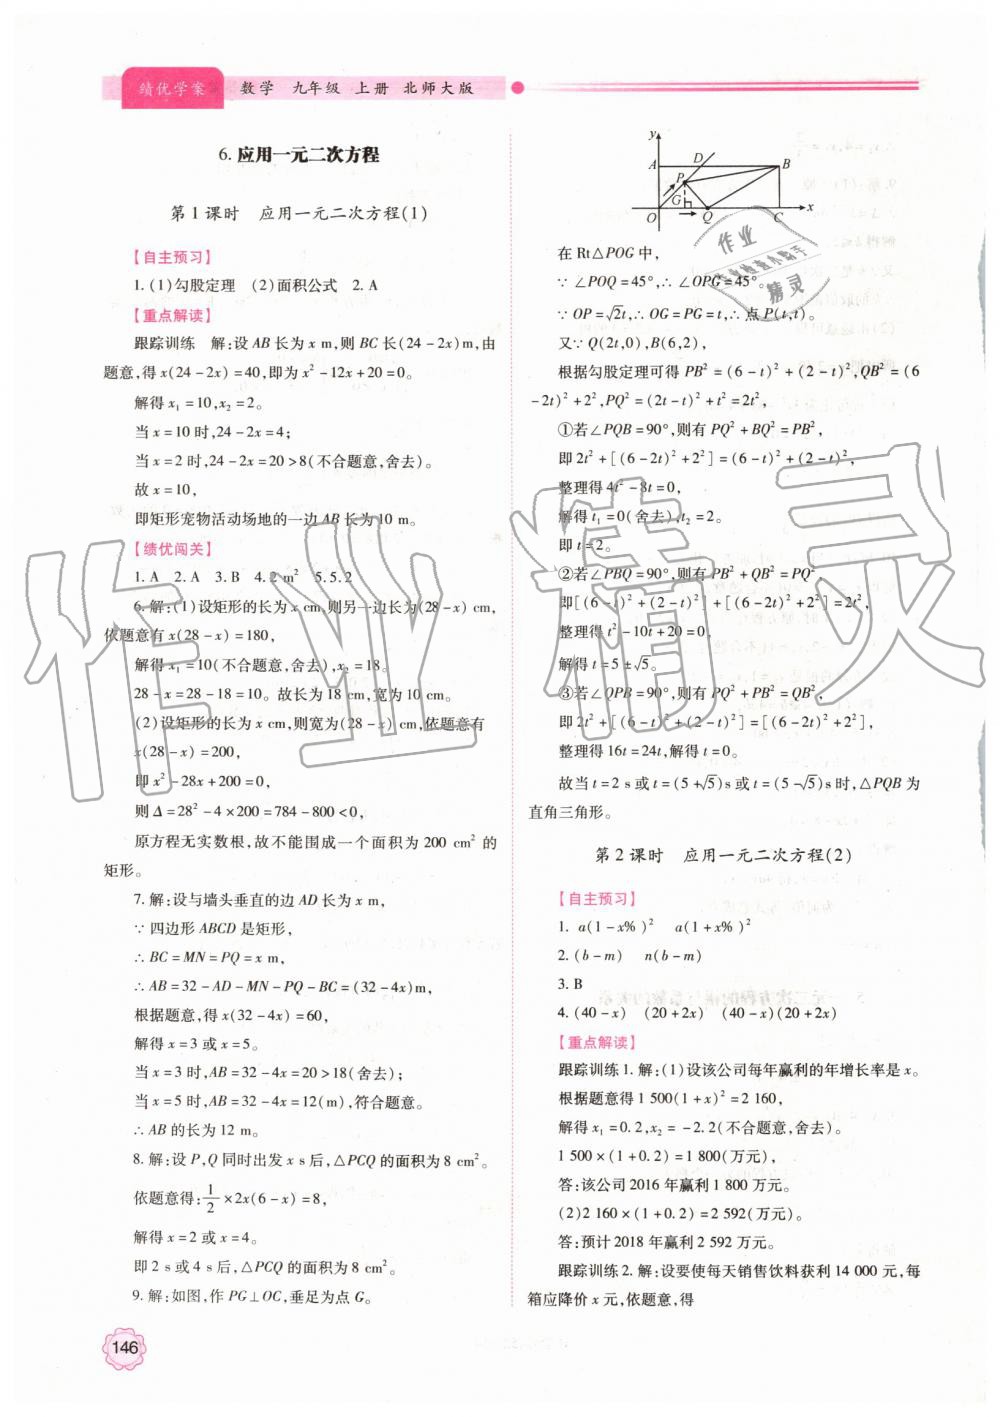 绩优学案 数学 九年级 上册 北师大版
6. 应用一元二次方程
第 1 课时 应用一元二次方程(1)
【自主预习】
1. (1)勾股定理 (2)面积公式 2. A
【重点解读】
跟踪训练 解:设 AB 长为 x m,则 BC 长(24-2x)m,由
题意,得 x(24-2x)=40,即为 x²-12x+20=0。
解得 x₁=10,x₂=2。
当 x=10 时,24-2x=4;
当 x=2 时,24-2x=20>8(不合题意,舍去)。
故 x=10,
即矩形宠物活动场地的一边 AB 长为 10 m。
【绩优闯关】
1. A 2. A 3. B 4. 2 m² 5. 5. 2
6. 解:(1)设矩形的长为 x cm,则另一边长为(28-x) cm,
依题意有 x(28-x)=180,
解得 x₁=10(不合题意,舍去),x₂=18。
28-x=28-18=10。故长为 18 cm,宽为 10 cm。
(2)设矩形的长为 x cm,则宽为(28-x) cm,依题意有
x(28-x)=200,
即 x²-28x+200=0,
则 Δ=28²-4×200=784-800<0,
原方程无实数根,故不能围成一个面积为 200 cm² 的
矩形。
7. 解:设与墙头垂直的边 AD 长为 x m,
∵ 四边形 ABCD 是矩形,
∴ BC=MN=PQ=x m,
∴ AB=32-AD-MN-PQ-BC=(32-4x)m,
根据题意,得 x(32-4x)=60,
解得 x=3 或 x=5。
当 x=3 时,AB=32-4x=20>18(舍去);
当 x=5 时,AB=32-4x=12(m),符合题意。
∴ AB 的长为 12 m。
8. 解:设 P,Q 同时出发 x s 后,△PCQ 的面积为 8 cm²。
依题意得:1/2×2x(6-x)=8,
解得 x=2 或 x=4。
即 2 s 或 4 s 后,△PCQ 的面积为 8 cm²。
9. 解:如图,作 PG⊥OC,垂足为点 G。
146
y
A D B
P
G
O Q C x
在 Rt△POG 中,
∵ ∠POQ=45°,∴ ∠OPG=45°。
∵ OP=√2t,∴ OG=PG=t,∴ 点 P(t,t)。
又∵ Q(2t,0),B(6,2),
根据勾股定理可得 PB²=(6-t)²+(2-t)²,QB²=(6
-2t)²+2²,PQ²=(2t-t)²+t²=2t²,
①若∠PQB=90°,则有 PQ²+BQ²=PB²,
即 2t²+[(6-2t)²+2²]=(6-t)²+(2-t)²,
整理得 4t²-8t=0,
解得 t₁=0(舍去),t₂=2。
即 t=2。
②若∠PBQ=90°,则有 PB²+QB²=PQ²,
即[(6-t)²+(2-t)²]+[(6-2t)²+2²]=2t²,
整理得 t²-10t+20=0,
解得 t=5±√5。
③若∠QPB=90°,则有 PQ²+PB²=QB²,
即 2t²+[(6-t)²+(2-t)²]=[(6-2t)²+2²],
整理得 16t=24t,解得 t=0。
故当 t=2 s 或 t=(5+√5)s 或 t=(5-√5)s 时,△PQB 为
直角三角形。
第 2 课时 应用一元二次方程(2)
【自主预习】
1. a(1-x%)² a(1+x%)²
2. (b-m) n(b-m)
3. B
4. (40-x) (20+2x) (40-x)(20+2x)
【重点解读】
跟踪训练 1. 解:(1)设该公司每年赢利的年增长率是 x。
根据题意得 1 500(1+x)²=2 160,
解得 x₁=0.2,x₂=-2.2(不合题意,舍去)。
1 500×(1+0.2)=1 800(万元),
答:该公司 2016 年赢利 1 800 万元。
(2)2 160×(1+0.2)=2 592(万元)。
答:预计 2018 年赢利 2 592 万元。
跟踪训练 2. 解:设要使每天销售饮料获利 14 000 元,每
箱应降价 x 元,依题意,得
作业精灵